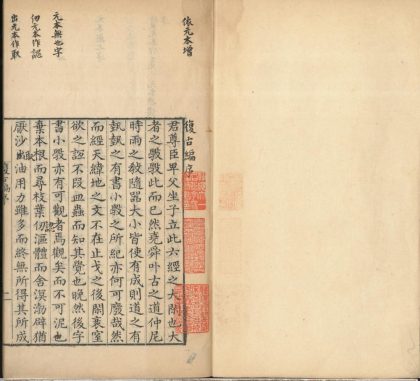 依元本增
復古編序
君尊臣卑父坐子立此六經之大閑也大
者之數數此而已然堯舜卟古之道仲尼
時雨之教隨器大小皆使有成則道之有
之有書小數之所紀亦何可廢哉然
而經天緯地之文不在止戈之後室
欲之不蟲而知其覺也晚然後字
書小數亦有可觀者焉觀矣而不可泥也
棄本根而尋枝葉仞漚體而舍溟渤辟猶
沙出油用力雖多而終無所得其所成
元本無也字
仞元本作認
出元本作取
復古編序